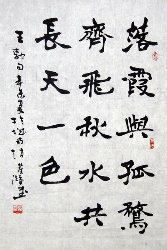 落霞與孤鶩
齊飛秋水共
長天一色
王勃句辛未夏於